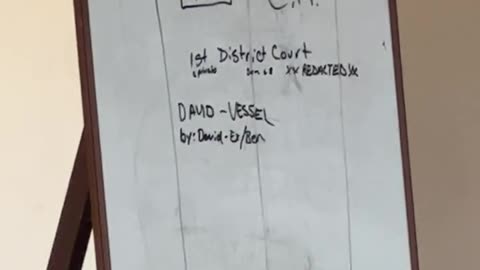 1st District Court
XX REDACTED XX
DAVID - VESSEL
by: David - Ex/Ben